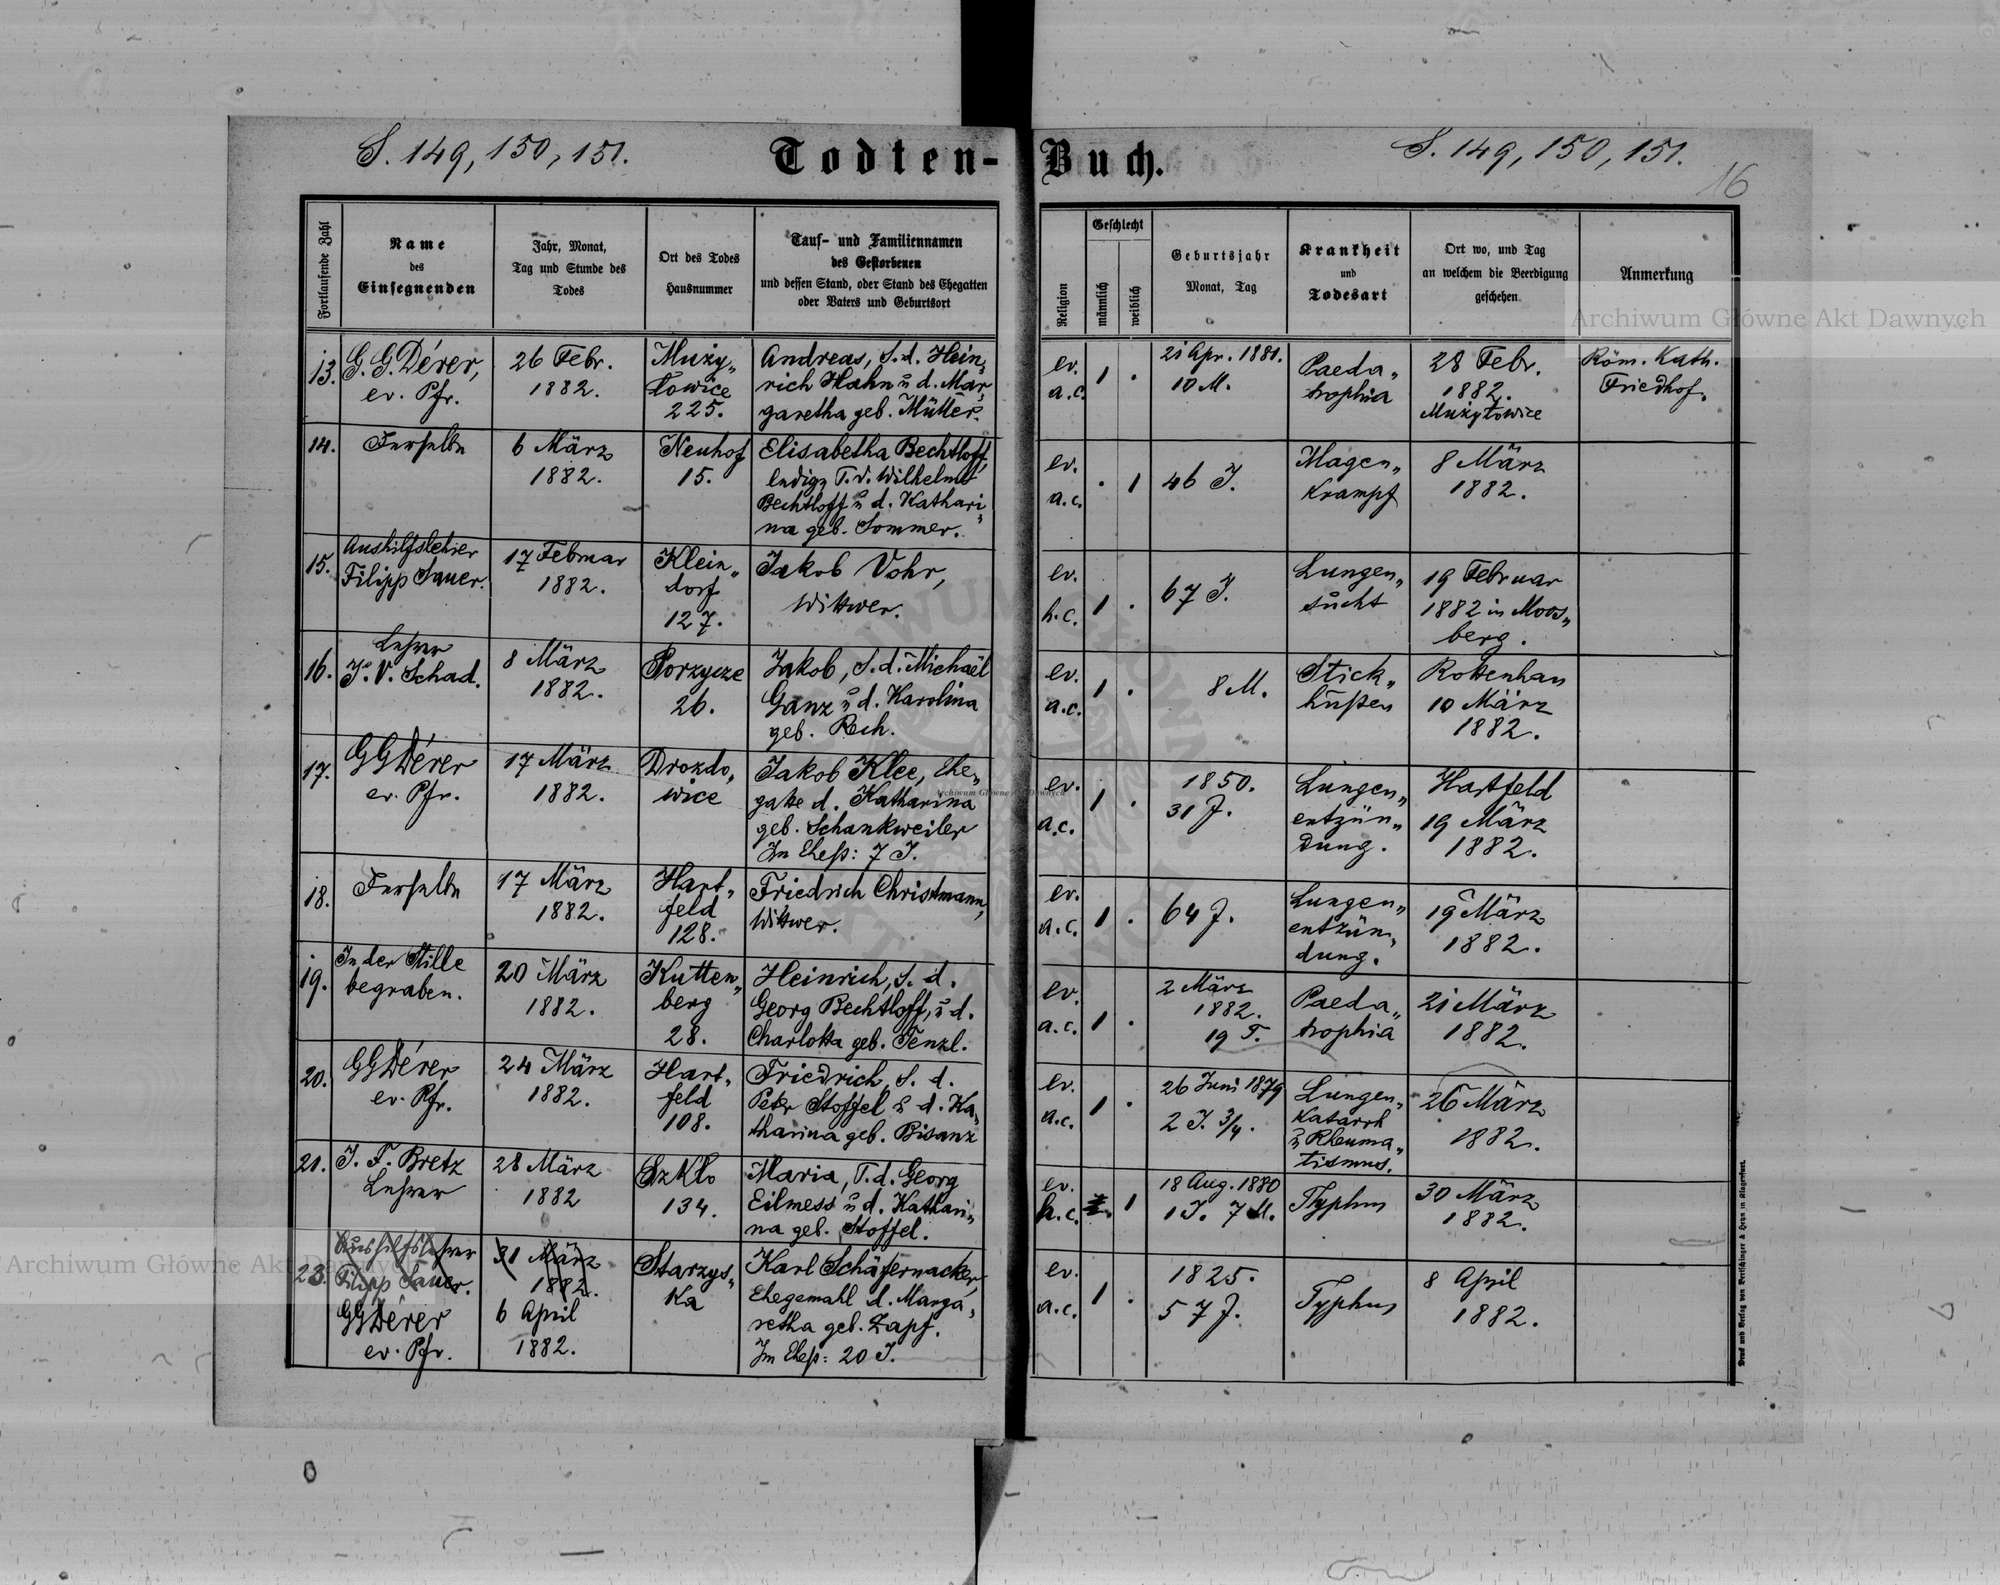 S. 149, 150, 151.
Todten-Buch.
S. 149, 150, 151.
16
Fortlaufende Zahl
Name
des
Einsegnenden
Jahr, Monat,
Tag und Stunde des
Todes
Ort des Todes
Hausnummer
Tauf- und Familiennamen
des Gestorbenen
und dessen Stand, oder Stand des Ehegatten
oder Vaters und Geburtsort
Religion
Geschlecht
männlich
weiblich
Geburtsjahr
Monat, Tag
Krankheit
und
Todesart
Ort wo, und Tag
an welchem die Beerdigung
geschehen
Anmerkung
13.
G. G. Dérer,
ev. Pfr.
26 Febr.
1882.
Muży„
łowice
225.
Andreas, S. d. Hein„
rich Hahn u d. Mar„
garetha geb. Müller.
ev.
a.c.
1 .
21 Apr. 1881.
10 M.
Paeda„
trophia
28 Febr.
1882.
Mużyłowice
Röm. Kath.
Friedhof.
14.
Derselbe
6 März
1882.
Neuhof
15.
Elisabetha Bechtloff,
ledige T. d. Wilhelm
Bechtloff u d. Kathari„
na geb. Sommer.
ev.
a.c.
. 1
46 J.
Magen„
krampf
8 März
1882.
15.
Aushilfslehrer
Filipp Sauer.
17 Februar
1882.
Klein„
dorf
127.
Jakob Vohr,
Wittwer.
ev.
h.c.
1 .
67 J.
Lungen„
sucht
19 Februar
1882 in Moos„
berg.
16.
Lehrer
J. V. Schad.
8 März
1882.
Porzycze
26.
Jakob, S. d. Michael
Ganz u d. Karolina
geb. Rech.
ev.
a.c.
1 .
8 M.
Stick„
husten
Rottenhan
10 März
1882.
17.
GG Dérer
ev. Pfr.
17 März
1882.
Drozdo„
wice
Jakob Klee, Ehe„
gatte d. Katharina
geb. Schankweiler
Im Ehest: 7 J.
ev.
a.c.
1 .
1850.
31 J.
Lungen„
entzün„
dung.
Hartfeld
19 März
1882.
18.
Derselbe
17 März
1882.
Hart„
feld
128.
Friedrich Christmann,
Wittwer.
ev.
a.c.
1 .
64 J.
Lungen„
entzün„
dung.
19 März
1882.
19.
In der Stille
begraben.
20 März
1882.
Kutten„
berg
28.
Heinrich, S. d.
Georg Bechtloff, u d.
Charlotta geb. Tenzl.
ev.
a.c.
1 .
2 März
1882.
19 T.
Paeda„
trophia
21 März
1882.
20.
GG Dérer
ev. Pfr.
24 März
1882.
Hart„
feld
108.
Friedrich, S. d.
Peter Stoffel u d. Ka„
tharina geb. Bisanz
ev.
a.c.
1 .
26 Juni 1879
2 J. 3/4.
Lungen„
Katarrh
u Rheuma„
tismus.
26 März
1882.
21.
J. F. Bretz
Lehrer
28 März
1882
Szkło
134.
Maria, T. d. Georg
Eilmess u d. Kathari„
na geb. Stoffel.
ev.
h.c.
1
18 Aug. 1880
1 J. 7 M.
Typhus
30 März
1882.
23.
Aushilfslehrer
Filipp Sauer.
GG Dérer
ev. Pfr.
31 März
1882.
6 April
1882.
Starzys„
ka
Karl Schäfernacker,
Ehegemahl d. Marga„
retha geb. Zapf.
Im Ehest: 20 J.
ev.
a.c.
1 .
1825.
57 J.
Typhus
8 April
1882.
Druck und Verlag von Bertschinger & Heyn in Klagenfurt.
Archiwum Główne Akt Dawnych
Archiwum Główne Akt Dawnych
Archiwum Główne Akt Dawnych